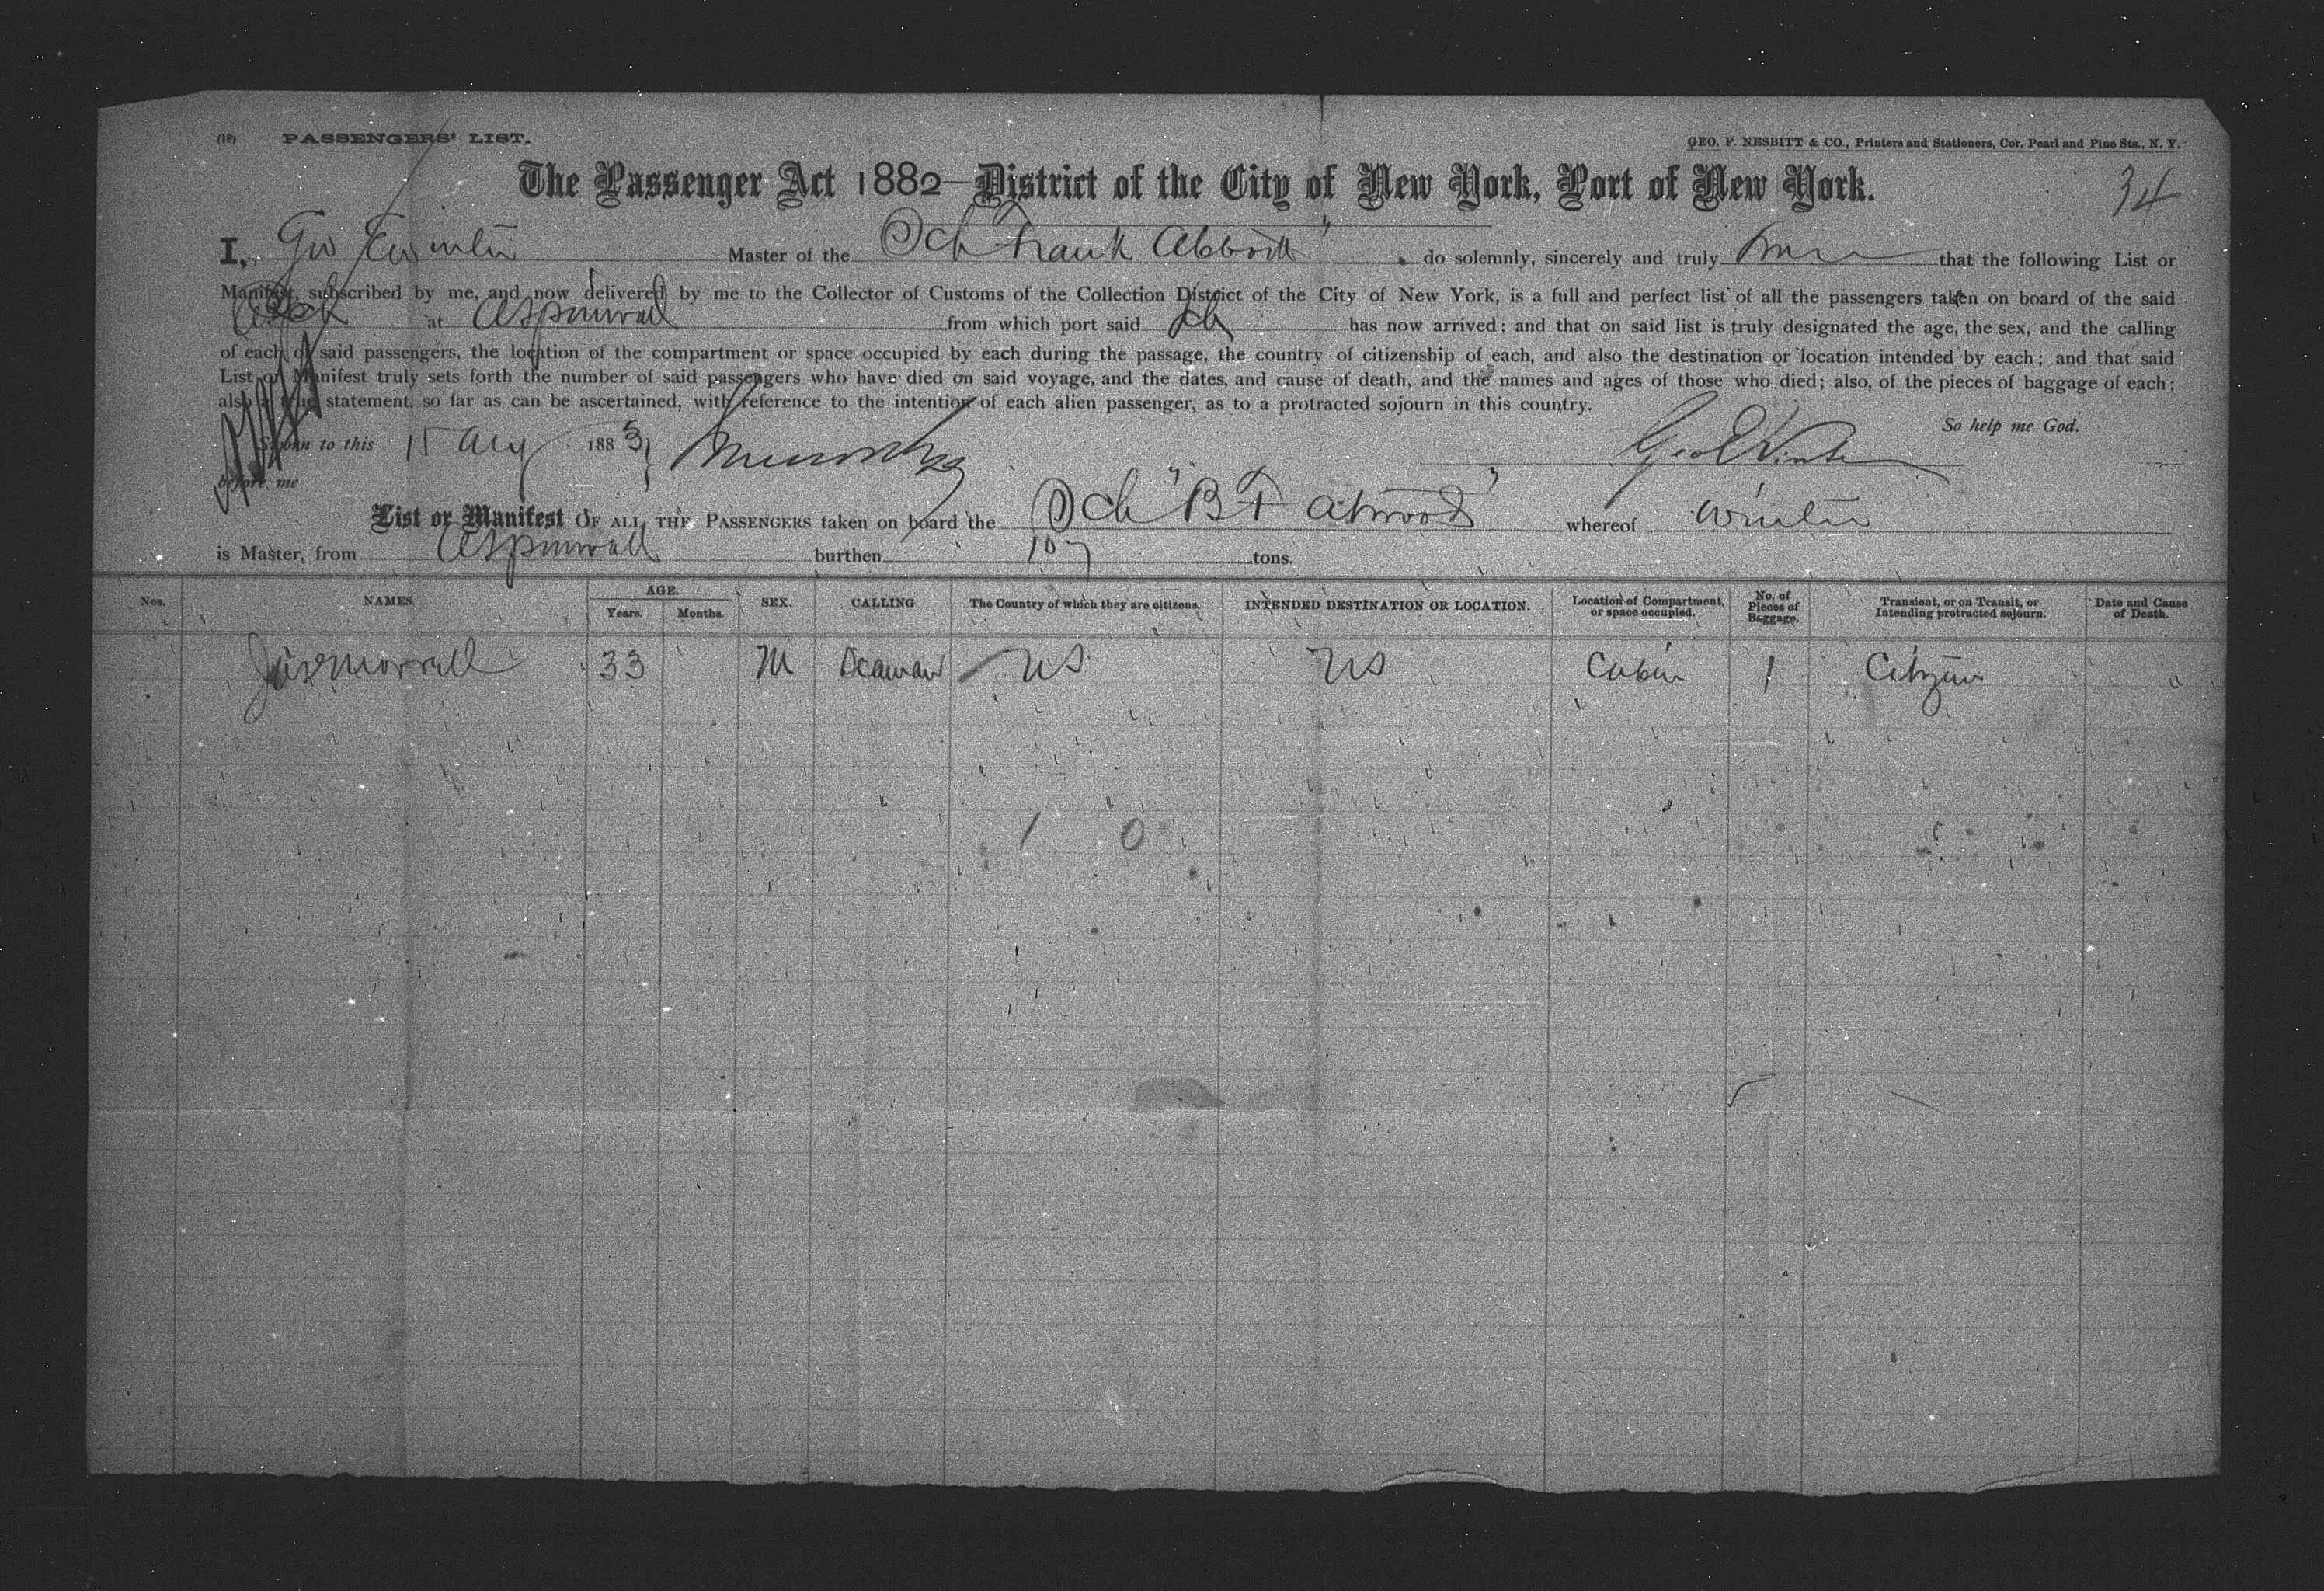 (18) PASSENGERS' LIST. GEO. F. NESBITT & CO., Printers and Stationers, Cor. Pearl and Pine Sts., N. Y.
The Passenger Act 1882—District of the City of New York, Port of New York. 34
I, Geo E Winter Master of the Sch "Frank Abbott" do solemnly, sincerely and truly that the following List or
Manifest, subscribed by me, and now delivered by me to the Collector of Customs of the Collection District of the City of New York, is a full and perfect list of all the passengers taken on board of the said
Sch at Aspinwall from which port said Sch has now arrived; and that on said list is truly designated the age, the sex, and the calling
of each of said passengers, the location of the compartment or space occupied by each during the passage, the country of citizenship of each, and also the destination or location intended by each; and that said
List or Manifest truly sets forth the number of said passengers who have died on said voyage, and the dates, and cause of death, and the names and ages of those who died; also, of the pieces of baggage of each;
also a true statement, so far as can be ascertained, with reference to the intention of each alien passenger, as to a protracted sojourn in this country.
So help me God.
Sworn to this 15 Aug 1883 Geo E Winter
before me
List or Manifest OF ALL THE PASSENGERS taken on board the Sch "B F Atwood" whereof Winter
is Master, from Aspinwall burthen 107 tons.
Nos. NAMES. AGE. Years. Months. SEX. CALLING The Country of which they are citizens. INTENDED DESTINATION OR LOCATION. Location of Compartment, or space occupied. No. of Pieces of Baggage. Transient, or on Transit, or Intending protracted sojourn. Date and Cause of Death.
Morrell 33 M Seaman US US Cabin 1 Citizen "
1 0